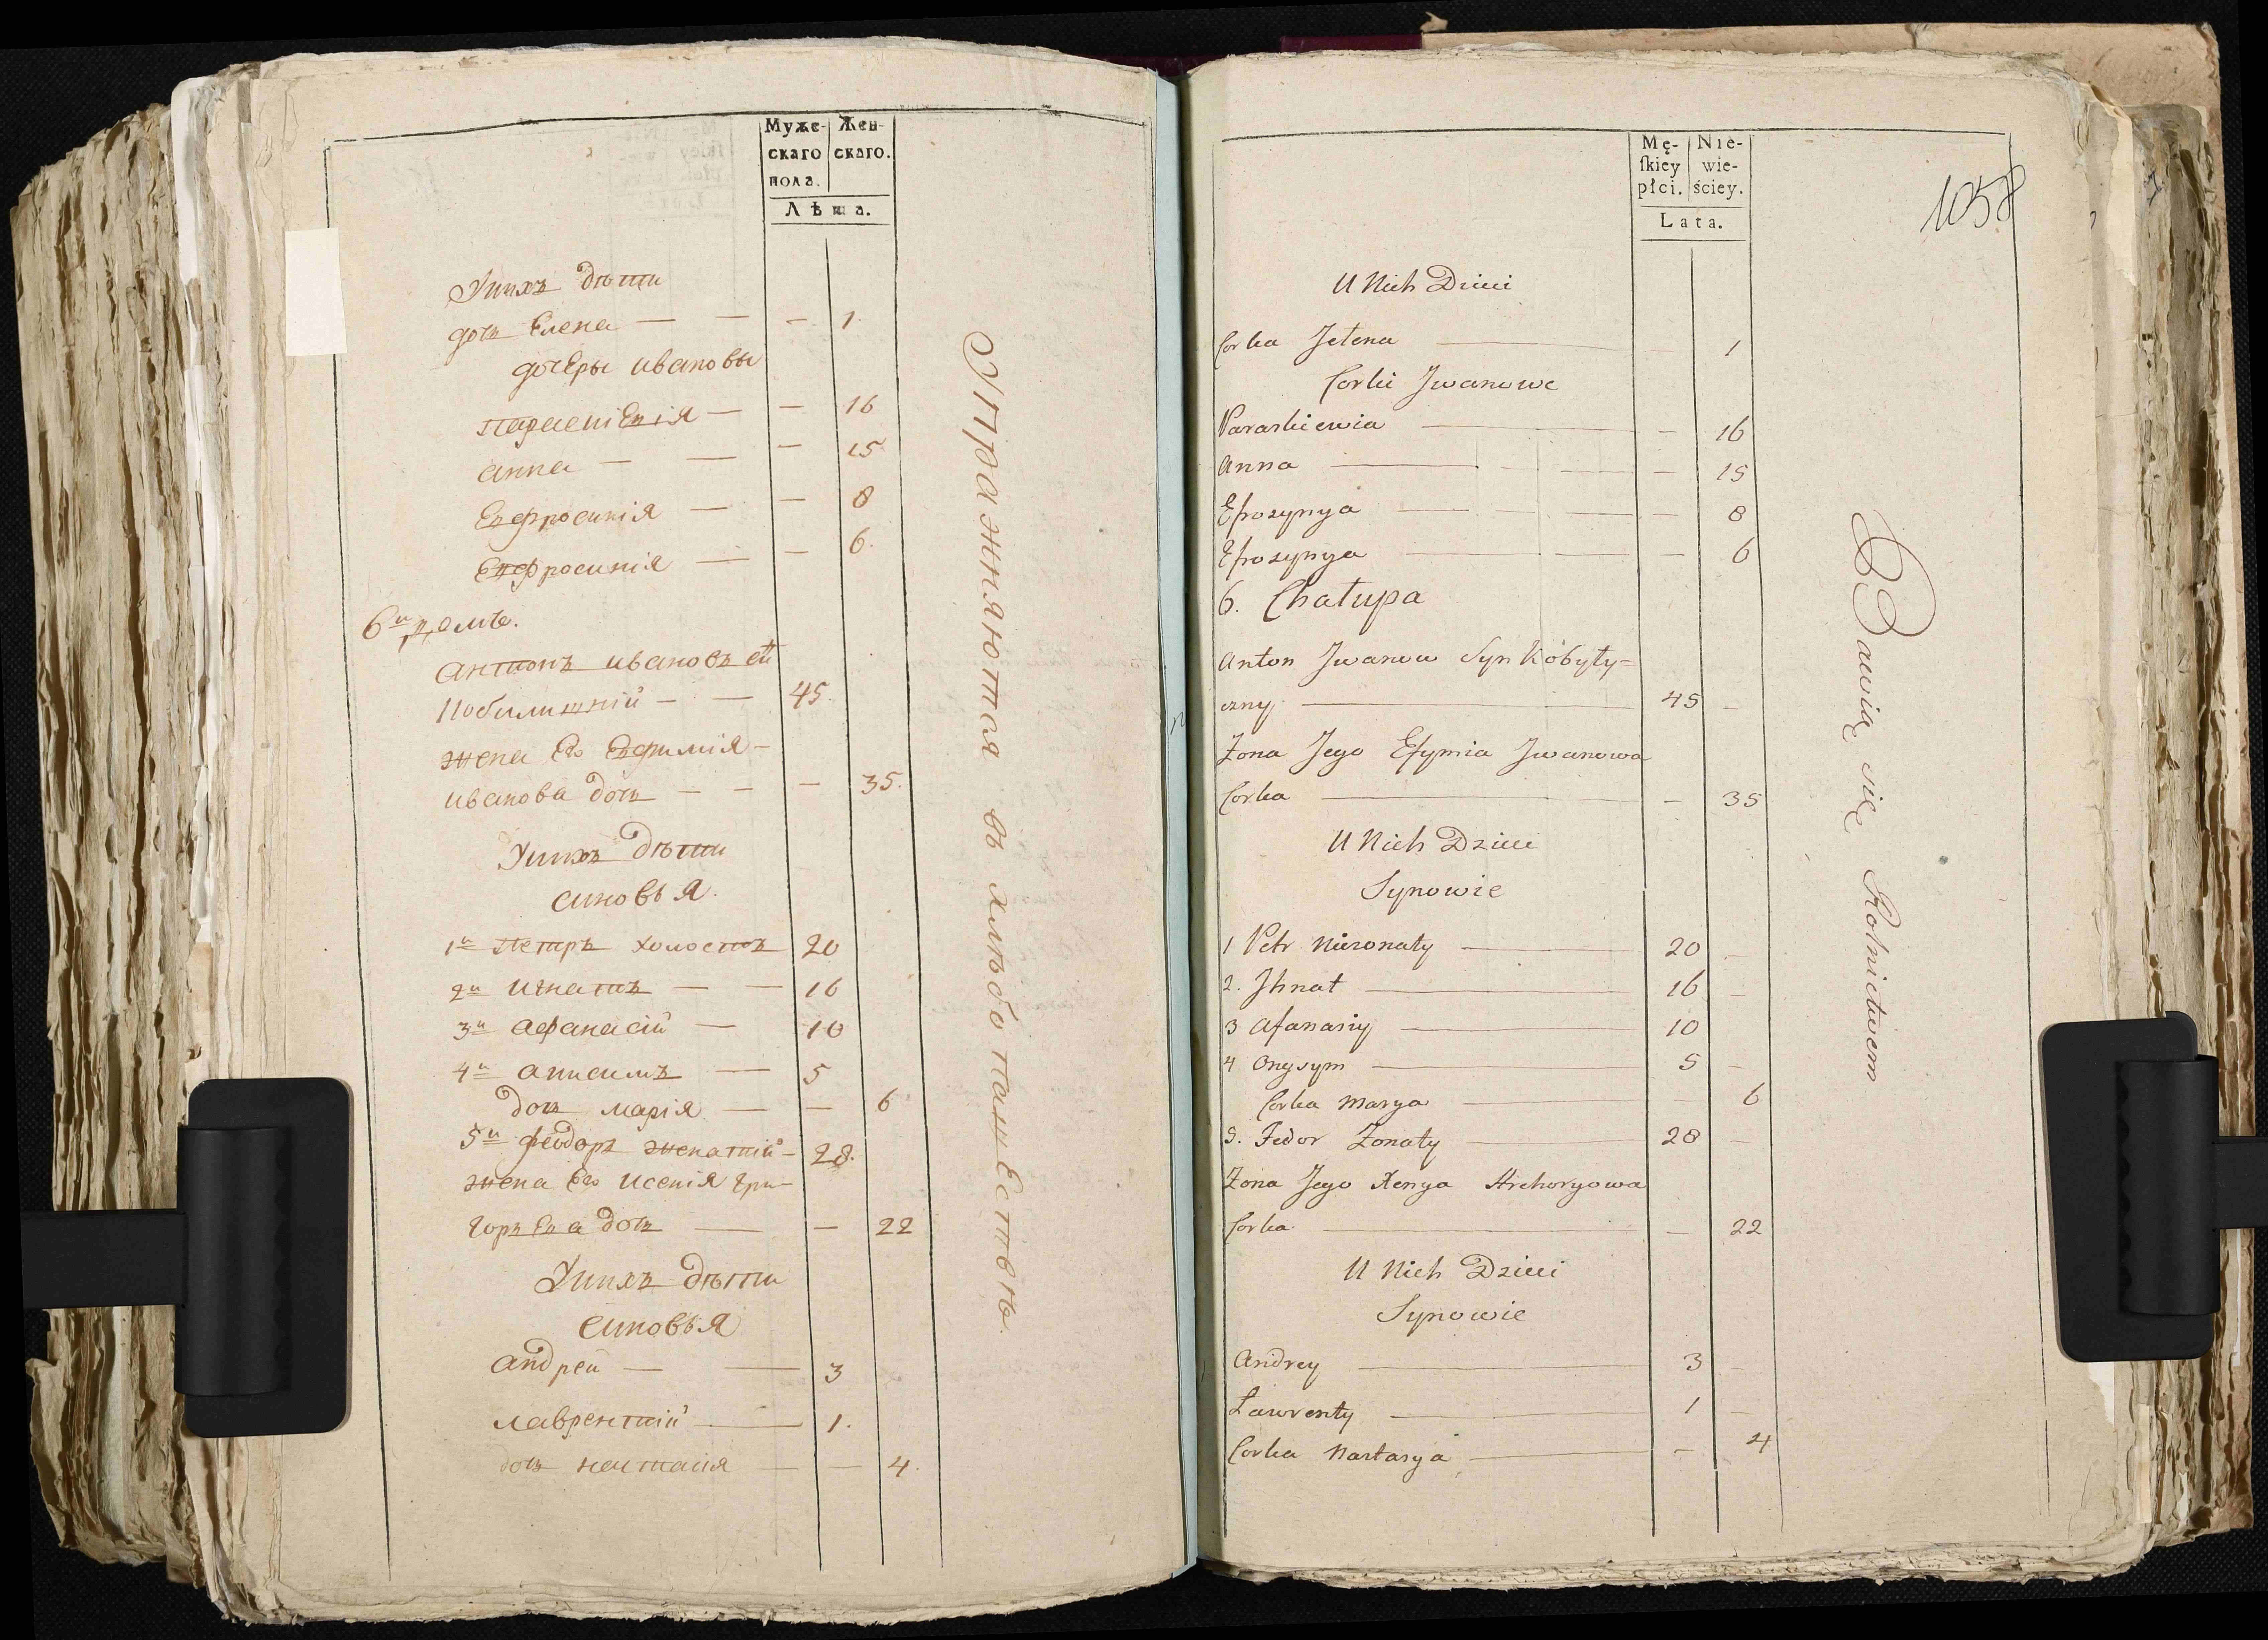 Муже- Жен-
скаго скаго.
пола.
Лѣта.
Унихъ дѣти
дочь Елена — — — 1.
дочЕры ивановы
параскіЕвія — — 16
анна — — — 15
Ефросинія — — 8
Ефросинія — — 6.
6й домъ.
антонъ ивановъ сы
Кобилишній — — 45.
жена Его Ефимія —
иванова дочь — — — 35.
Унихъ дѣти
синовья.
1й петръ холостъ 20
2й игнатъ — — 16
3й афанасій — 10
4й анисимъ — 5
дочь марія — — 6
5й феодоръ женатій — 28.
жена Его ксенія гри-
горьева дочь — — 22
Унихъ дѣти
синовья
андрей — — 3
лаврентій — 1.
дочь настасія — — 4.
Упражняются въ хлѣбопашЕствѣ.
Mę- Nie-
skiey wie-
płci. ściey.
Lata.
1058
U Nich Dzieci
Corka Jelena — 1
Corki Jwanowe
Paraskiewia — — 16
Anna — — — 15
Efrosynya — — — 8
Efrosynya — — — 6
6. Chałupa
Anton Jwanow Syn Kobyły=
czny — 45 —
Żona Jego Efymia Jwanowa
Corka — — 35
U Nich Dzieci
Synowie
1 Petr Nieżonaty — 20 —
2. Jhnat — 16 —
3 Afanasiy — 10
4 Onysym — 5 —
Corka Marya — — 6
5. Fedor Żonaty — 28 —
Żona Jego Xenya Hrehoryowa
Corka — — 22
U Nich Dzieci
Synowie
Andrey — 3
Ławrenty — 1 —
Corka Nastasya — — 4
Bawią się Rolnictwem